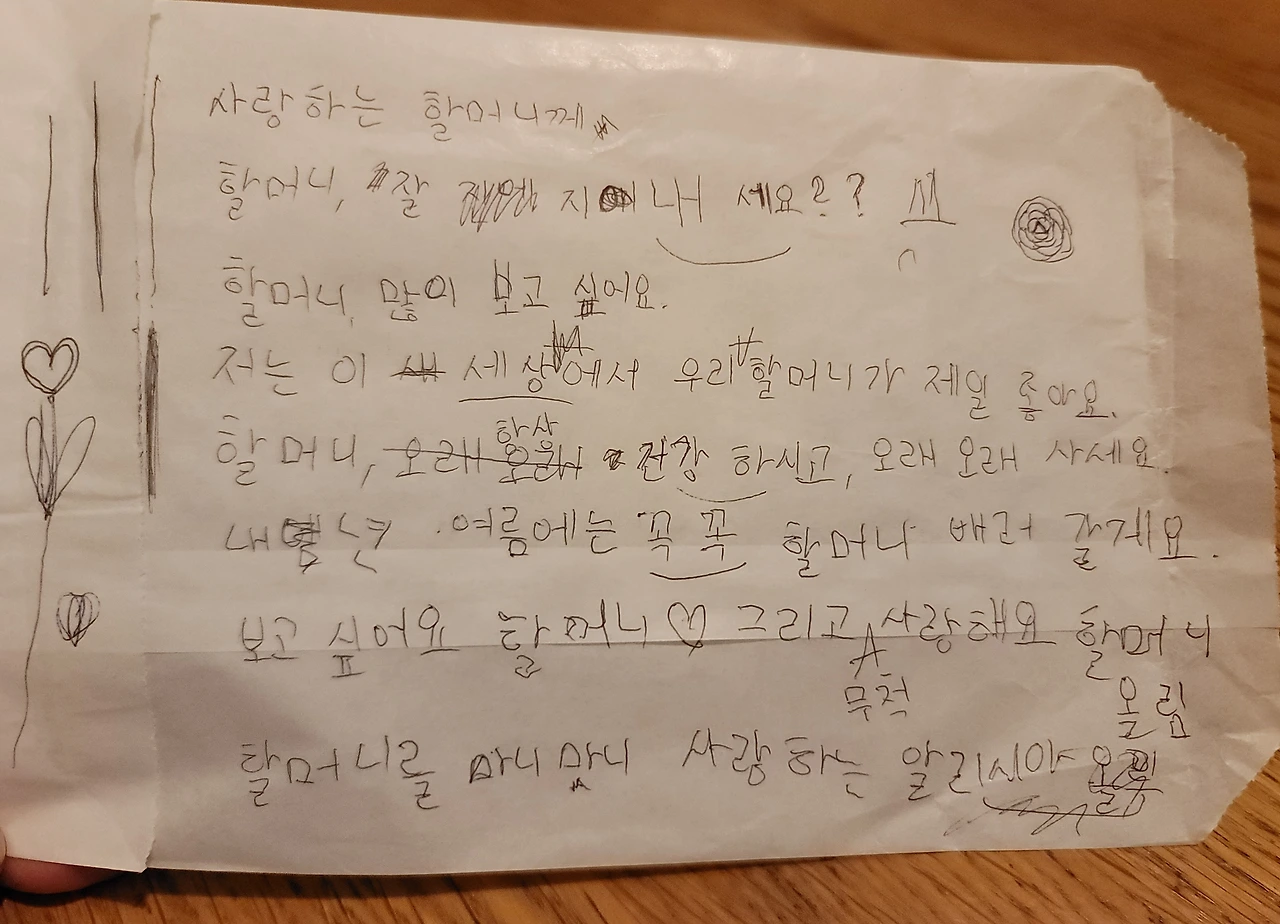 사랑하는 할머니께
할머니, 잘 지내세요??
할머니, 많이 보고 싶어요.
저는 이 세상에서 우리 할머니가 제일 좋아요.
할머니, 항상 건강하시고, 오래 오래 사세요.
내년 여름에는 꼭 꼭 할머니 뵈러 갈게요.
보고 싶어요 할머니♡ 그리고 무척 사랑해요 할머니
할머니를 마니 마니 사랑하는 알리시아 올림